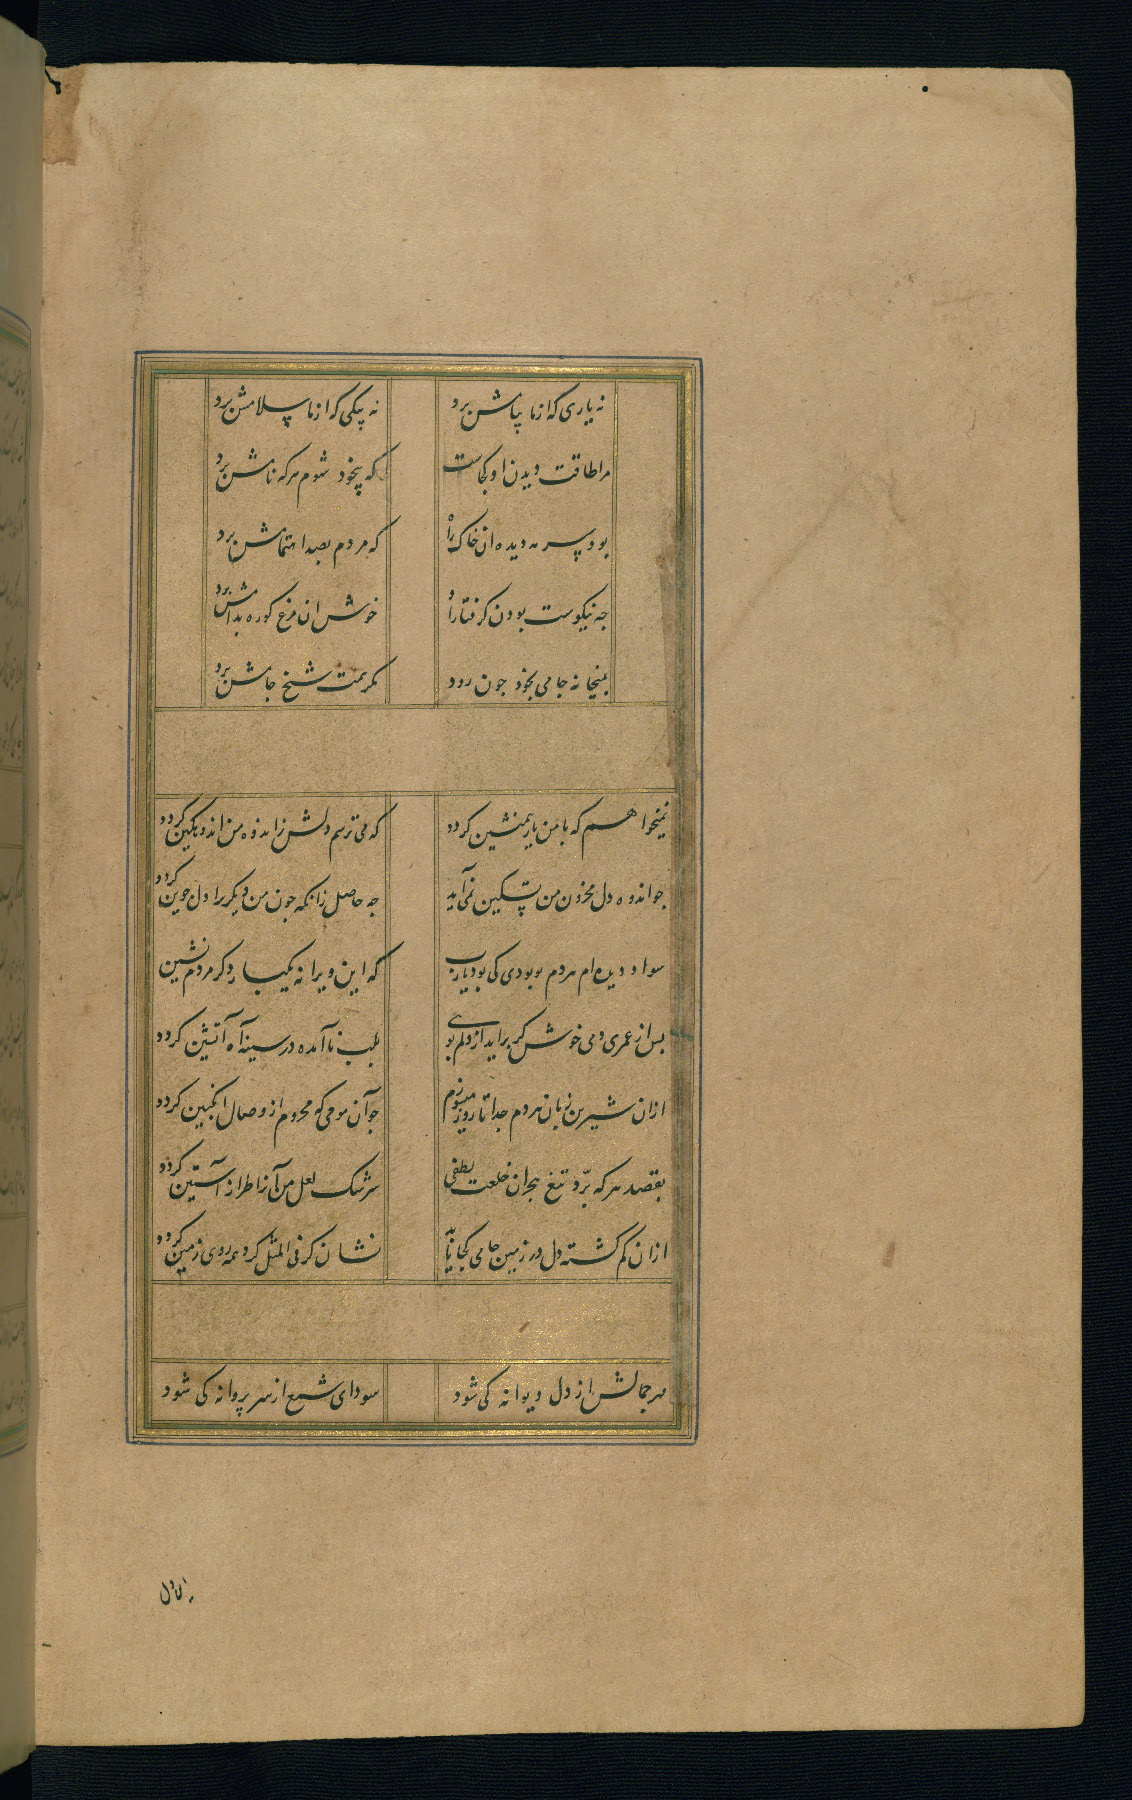 نه یاری که از ما پیامش برد نه پیکی که از ما سلامش برد
مرا طاقت دیدن او کجاست که بیخود شوم هر که نامش برد
بود سرمه دیده ان خاک راه که مردم بصد اهتمامش برد
چه نیکوست بودن گرفتار او خوش ان مرغ کو ره بدامش برد
بمیخانه جامی بخود چون رود مکر همت شیخ جامش برد
نمیخواهم که با من یار همنشین کردد که می ترسم دلش زاندوه من اندوهکین کردد
چو اندوه دل محزون من تسکین نمی آید چه حاصل زانکه چون من دیکریرا دل حزین کردد
سواد دیده ام مردم بودی کی بود یارب که این ویرانه یکبار دکر مردم نشین
پس از عمری دمی خوش کر براید از دلم بویی بلب ناآمده در سینه آه آتشین کردد
ازان شیرین زبان مردم جدا تا روز میسوزم چو آن مومی که محروم از وصال انکبین کردد
بقصد هر که برد تیغ هجران خلعت لطفی سرشک لعل من آنرا طراز آستین کردد
ازان کم کشته دل در زمین جامی کجا یابد نشان کر فی المثل کرد همه روی زمین کردد
مهر جمالش از دل دیوانه کی شود سودای شمع از سر پروانه کی شود